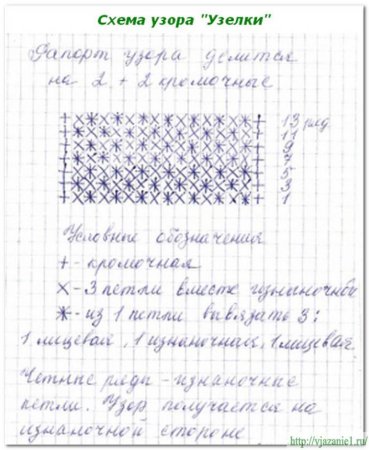 Схема узора "Узелки"
Раппорт узора делится
на 2 + 2 кромочные
13 ряд
11
9
7
5
3
1
Условные обозначения
+ - кромочная
× - 3 петли вместе изнаночной
⁎ - из 1 петли вывязать 3:
1 лицевая, 1 изнаночная, 1 лицевая.
Четные ряды - изнаночные
петли. Узор получается на
изнаночной стороне
http://vjazanie1.ru/